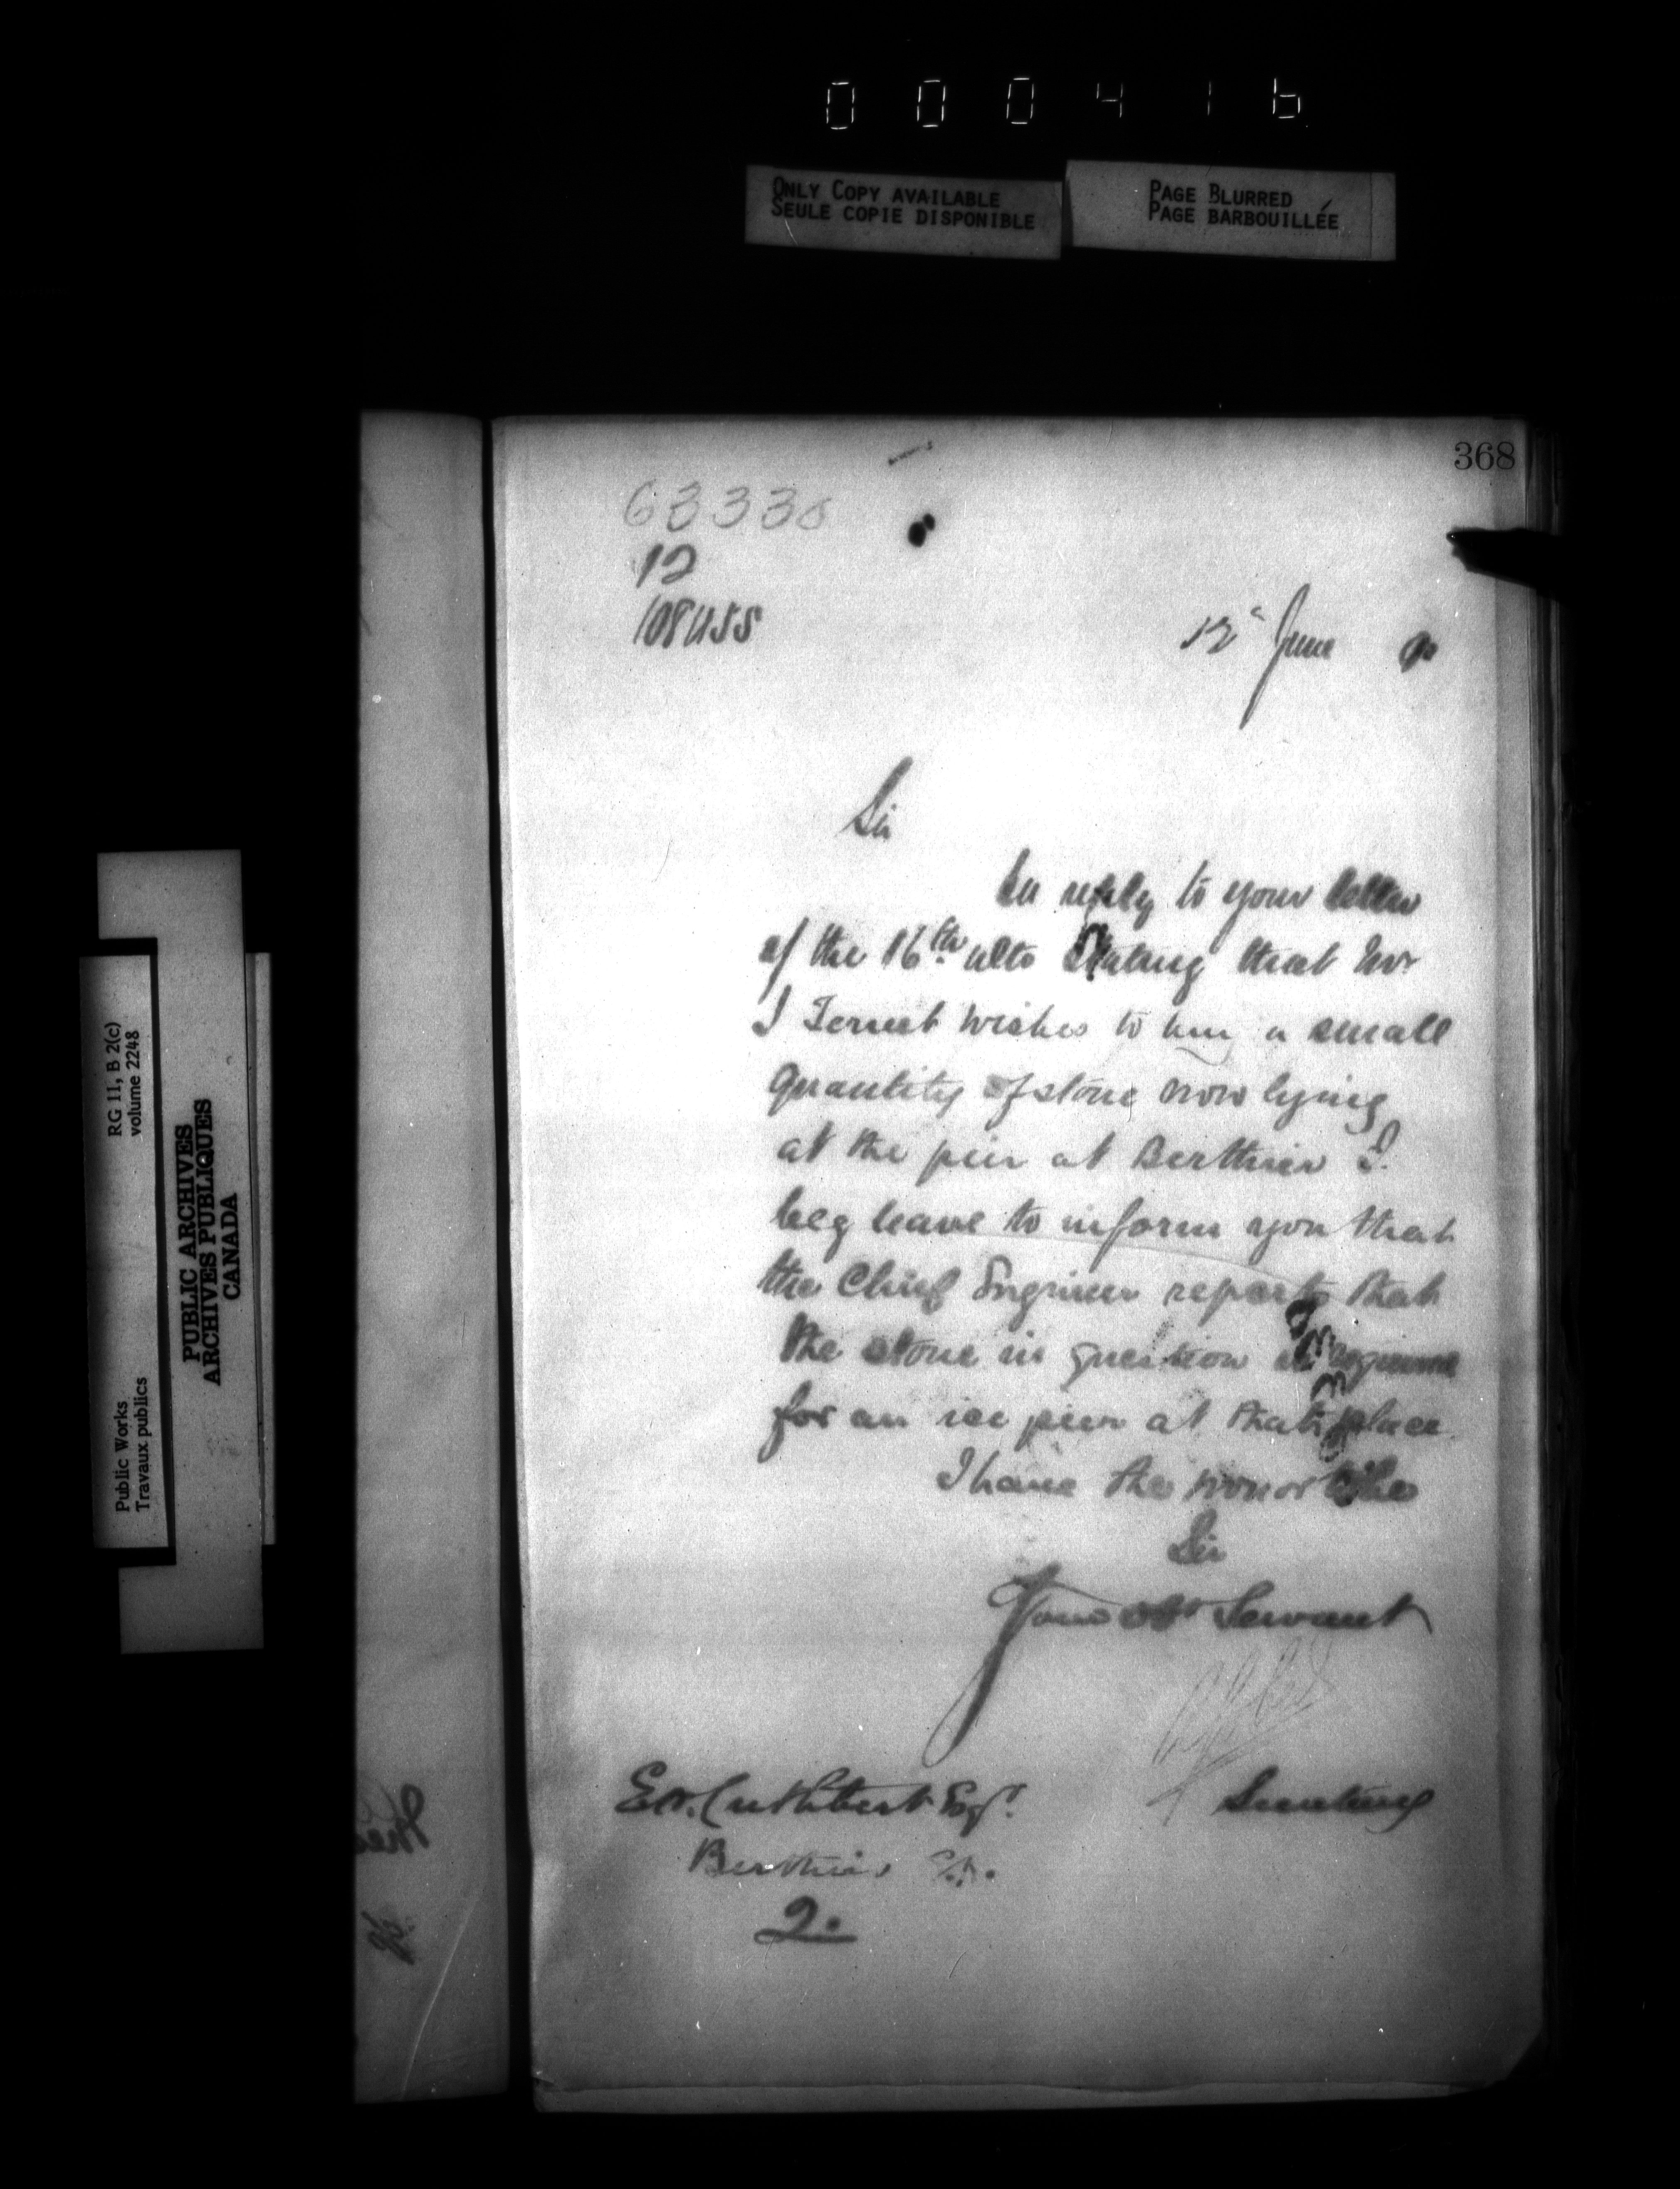 000416
ONLY COPY AVAILABLE
SEULE COPIE DISPONIBLE
PAGE BLURRED
PAGE BARBOUILLÉE
368
63330
12
108455
12" June 90
Sir
In reply to your letter
of the 16th ulto stating that Mr
J wishes to buy a small
quantity of stone now lying
at the pier at Berthier I
beg leave to inform you that
the Chief Engineer reports that
the stone in question is
for an ice pier at that place
I have the honor to be
Sir
Your obt Servant
Secretary
E. Cuthbert Esqr.
Berthier
2.
RG 11, B 2(c)
volume 2248
Public Works
Travaux publics
PUBLIC ARCHIVES
ARCHIVES PUBLIQUES
CANADA